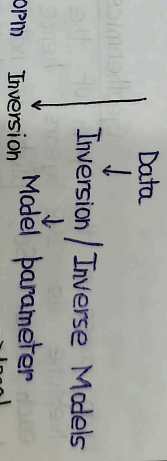 Data
↓
Inversion / Inverse Models
↓
Model parameter
Inversion
orm